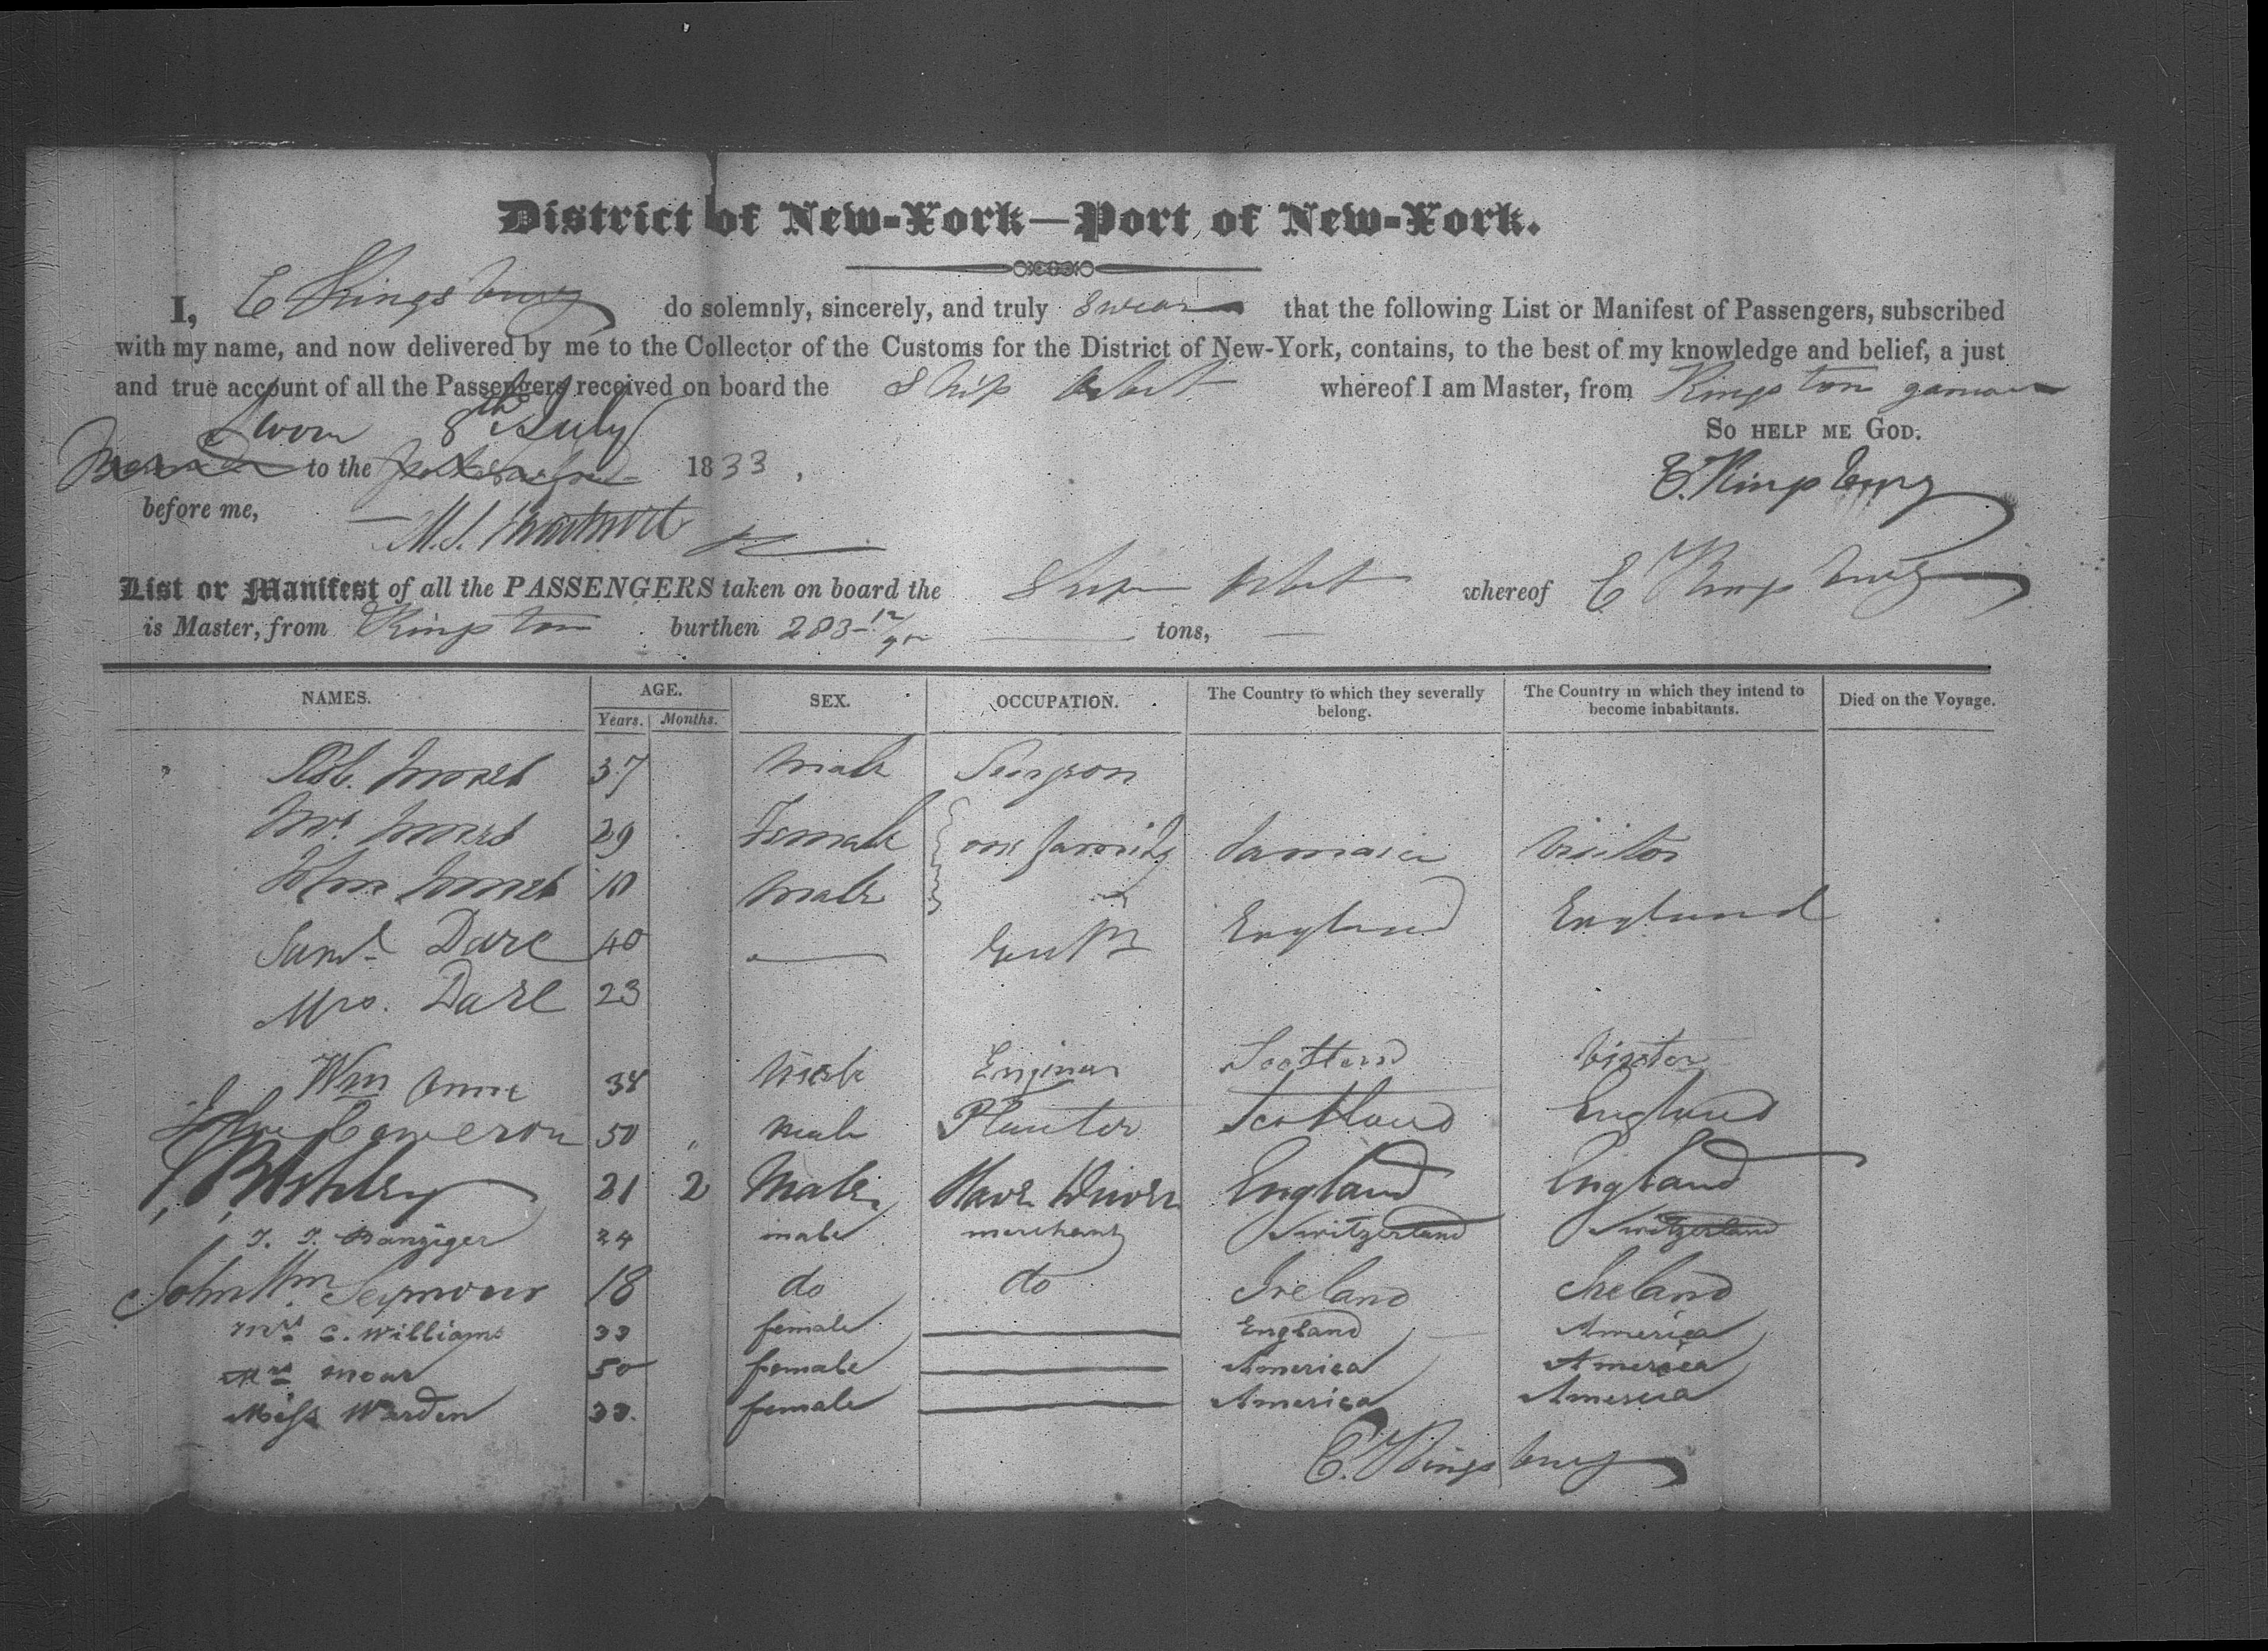 District of New-York—Port of New-York.
I, E Kingsbury do solemnly, sincerely, and truly swear that the following List or Manifest of Passengers, subscribed
with my name, and now delivered by me to the Collector of the Customs for the District of New-York, contains, to the best of my knowledge and belief, a just
and true account of all the Passengers received on board the Ship whereof I am Master, from Kingston
Sworn 8th July
So help me God.
to the 1833,
E. Kingsbury
before me,
M. S.
List or Manifest of all the PASSENGERS taken on board the Ship whereof E Kingsbury
is Master, from Kingston burthen 283 tons,
NAMES. AGE. SEX. OCCUPATION. The Country to which they severally belong. The Country in which they intend to become inhabitants. Died on the Voyage.
Years. Months.
Rob. 37 Male Surgeon
Mrs 29 Female one family Jamaica Visitor
John 10 Male
Saml. Dare 40 Gentn England England
Mrs. Dare 23
Wm 38 Male Engineer Scotland Visitor
John Cameron 50 " Male Planter Scotland England
21 2 Male Slave Driver England England
J. J. Banziger 24 male merchant Switzerland Switzerland
John Wm. Seymour 18 do do Ireland Ireland
Mrs C. Williams 33 female England America
Mrs 50 female America America
Miss Warden 33. female America America
E. Kingsbury